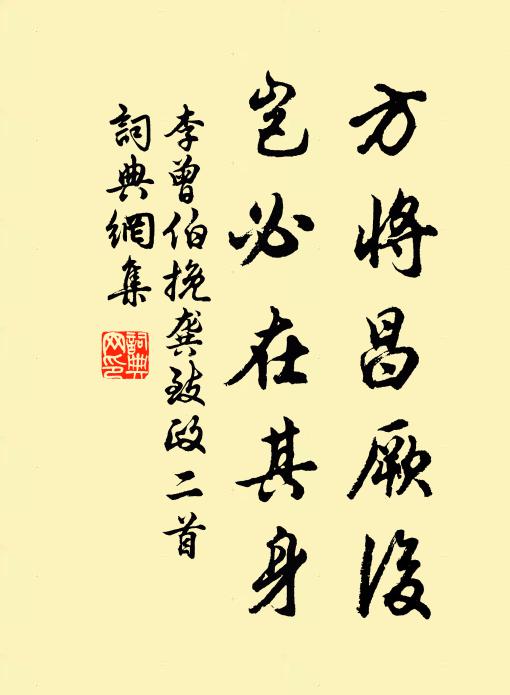 方將昌厥後
豈必在其身
李曾伯挽龔致政二首
詞典網集
詞典網印